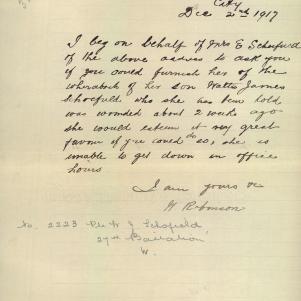 City
Dec 21st 1917
I beg on behalf of Mrs E Schofield
of the above adress to ask you
if you could furnish her of the
wherabouts of her son Walter James
Schofield who she has been told
was wounded about 2 weeks ago
she would esteem it very great
favour if you could do so, she is
unable to get down in office
hours
I am yours &c
H Robinson
to 2223 Pte W J Schofield
27th Battalion
W.